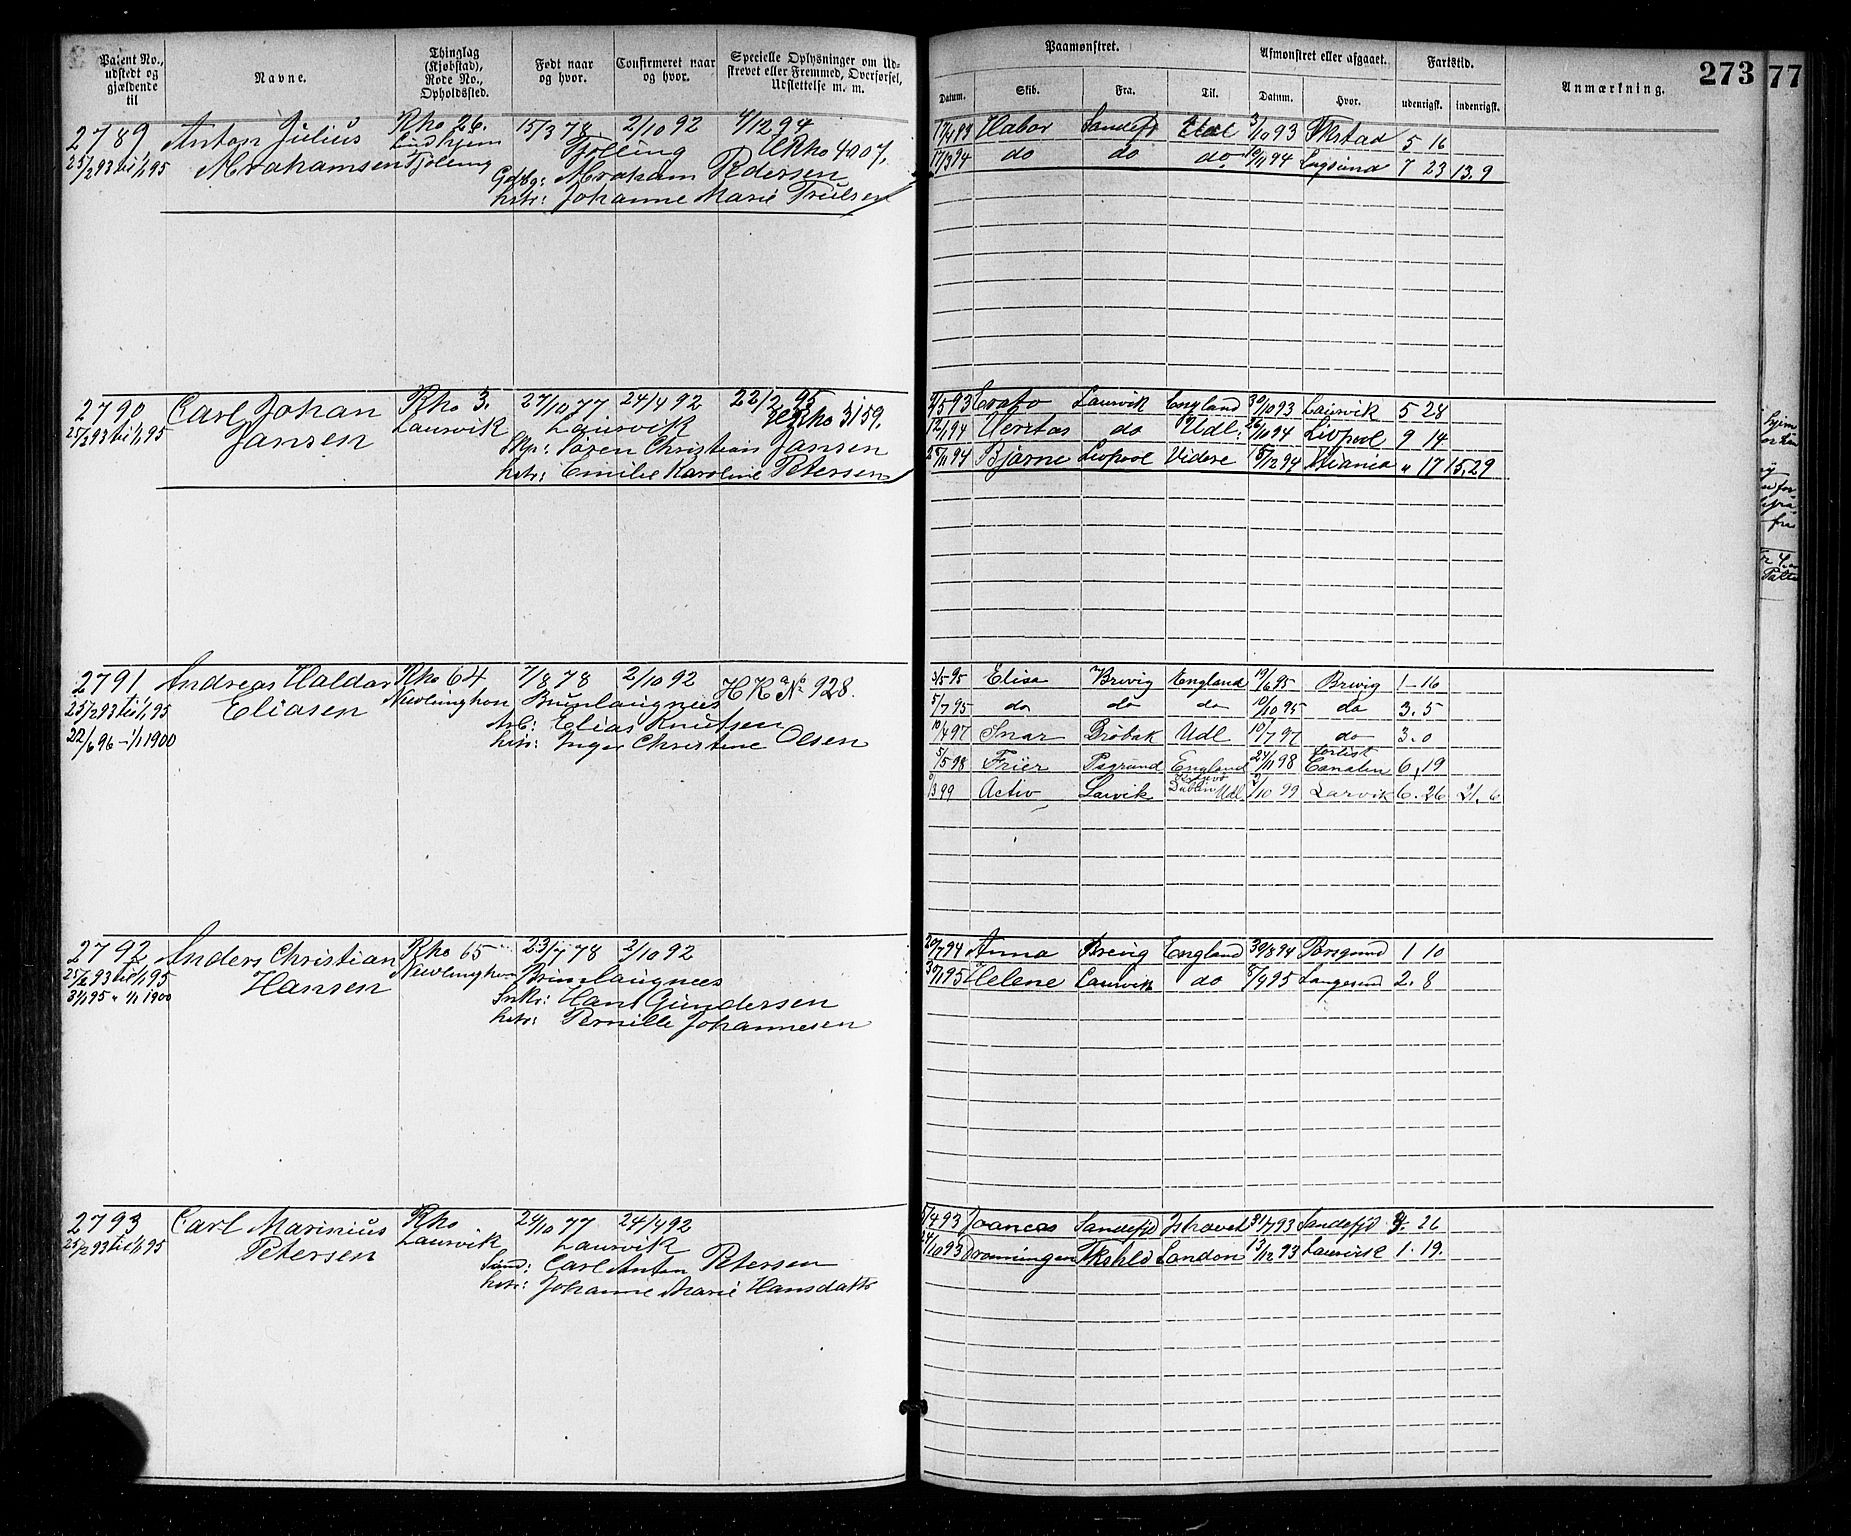 Patent No., udstedt og gjældende til
Navne.
Thinglag (Kjøbstad), Rode No., Opholdssted.
Født naar og hvor.
Confirmeret naar og hvor.
Specielle Oplysninger om Udskrevet eller Fremmed, Overførsel, Udslettelse m. m.
Paamønstret.
Afmønstret eller afgaaet.
Fartstid.
Anmærkning.
273
77
Datum.
Skib.
Fra.
Til.
Datum.
Hvor.
udenrigsk.
indenrigsk.
2789 Anton Julius Rho 26. 15/3 78 2/10 92 4/12 94
25/2 93 til 1/1 95 Abrahamsen Tjølling Tjølling URho 4007.
Gdbg: Abraham Pedersen
hstr: Johanne Marie Trulsen
17/4 93 Habor Sandefj Udl 3/10 93 Fkstad 5 16
17/3 94 do do do 10/11 94 Lngsund 7 23 13.9
2790 Carl Johan Rho 3. 27/10 77 24/4 92 22/2 95
25/2 93 til 1/1 95 Jansen Laurvik Laurvik URho 3159.
Skp: Søren Christian Jansen
hstr: Emilie Karoline Petersen
5 93 Erato Laurvik England 30/10 93 Laurvik 5 28
12/1 94 Veritas do Udl: 26/10 94 Livpool 9 14
25/11 94 Bjørne Livpool Videre 15/12 94 " 17 15.29
2791 Andreas Haldor Rho 64 7/8 78 2/10 92 HK No 928.
25/2 93 til 1/1 95 Eliasen Brunlangnes
22/6 96 – 1/1 1900 Arb: Elias Knutsen
hstr: Inger Christine Olsen
3/5 95 Elise Brevig England 19/6 95 Brevig 1-16
5/7 95 do do do 19/10 95 do 3. 5
10/4 97 Snar Drøbak Udl 10/7 97 do 3. 0
5/5 98 Frier Psgrund England 24/11 98 forlist Canalen 6, 19
/3 99 Activ Larvik Dublin Udl /10 99 Larvik 6. 26 21. 6
2792 Anders Christian Rho 65 23/7 78 2/10 92
25/2 93 til 1/1 95 Hansen Brunlangnes
31/1 95 " 1/1 1900 Snkr: Hans Gundersen
hstr: Pernille Johannesen
20/7 94 Anna Brevig England 30/8 94 Porsgrund 1 10
30/1 95 Helene Laurvik do 8/9 95 Langesund 2. 8
2793 Carl Marinius Rho 24/10 77 24/4 92
25/2 93 til 1/1 95 Petersen Laurvik Laurvik
Sømd: Carl Anton Petersen
hstr: Johanne Marie Hansdattr
5/4 93 Sandefjd Ishavet 31/7 93 Sandefjd 3. 26
24/10 93 Dronningen Fkshld London 13/12 93 Laurvik 1. 19.